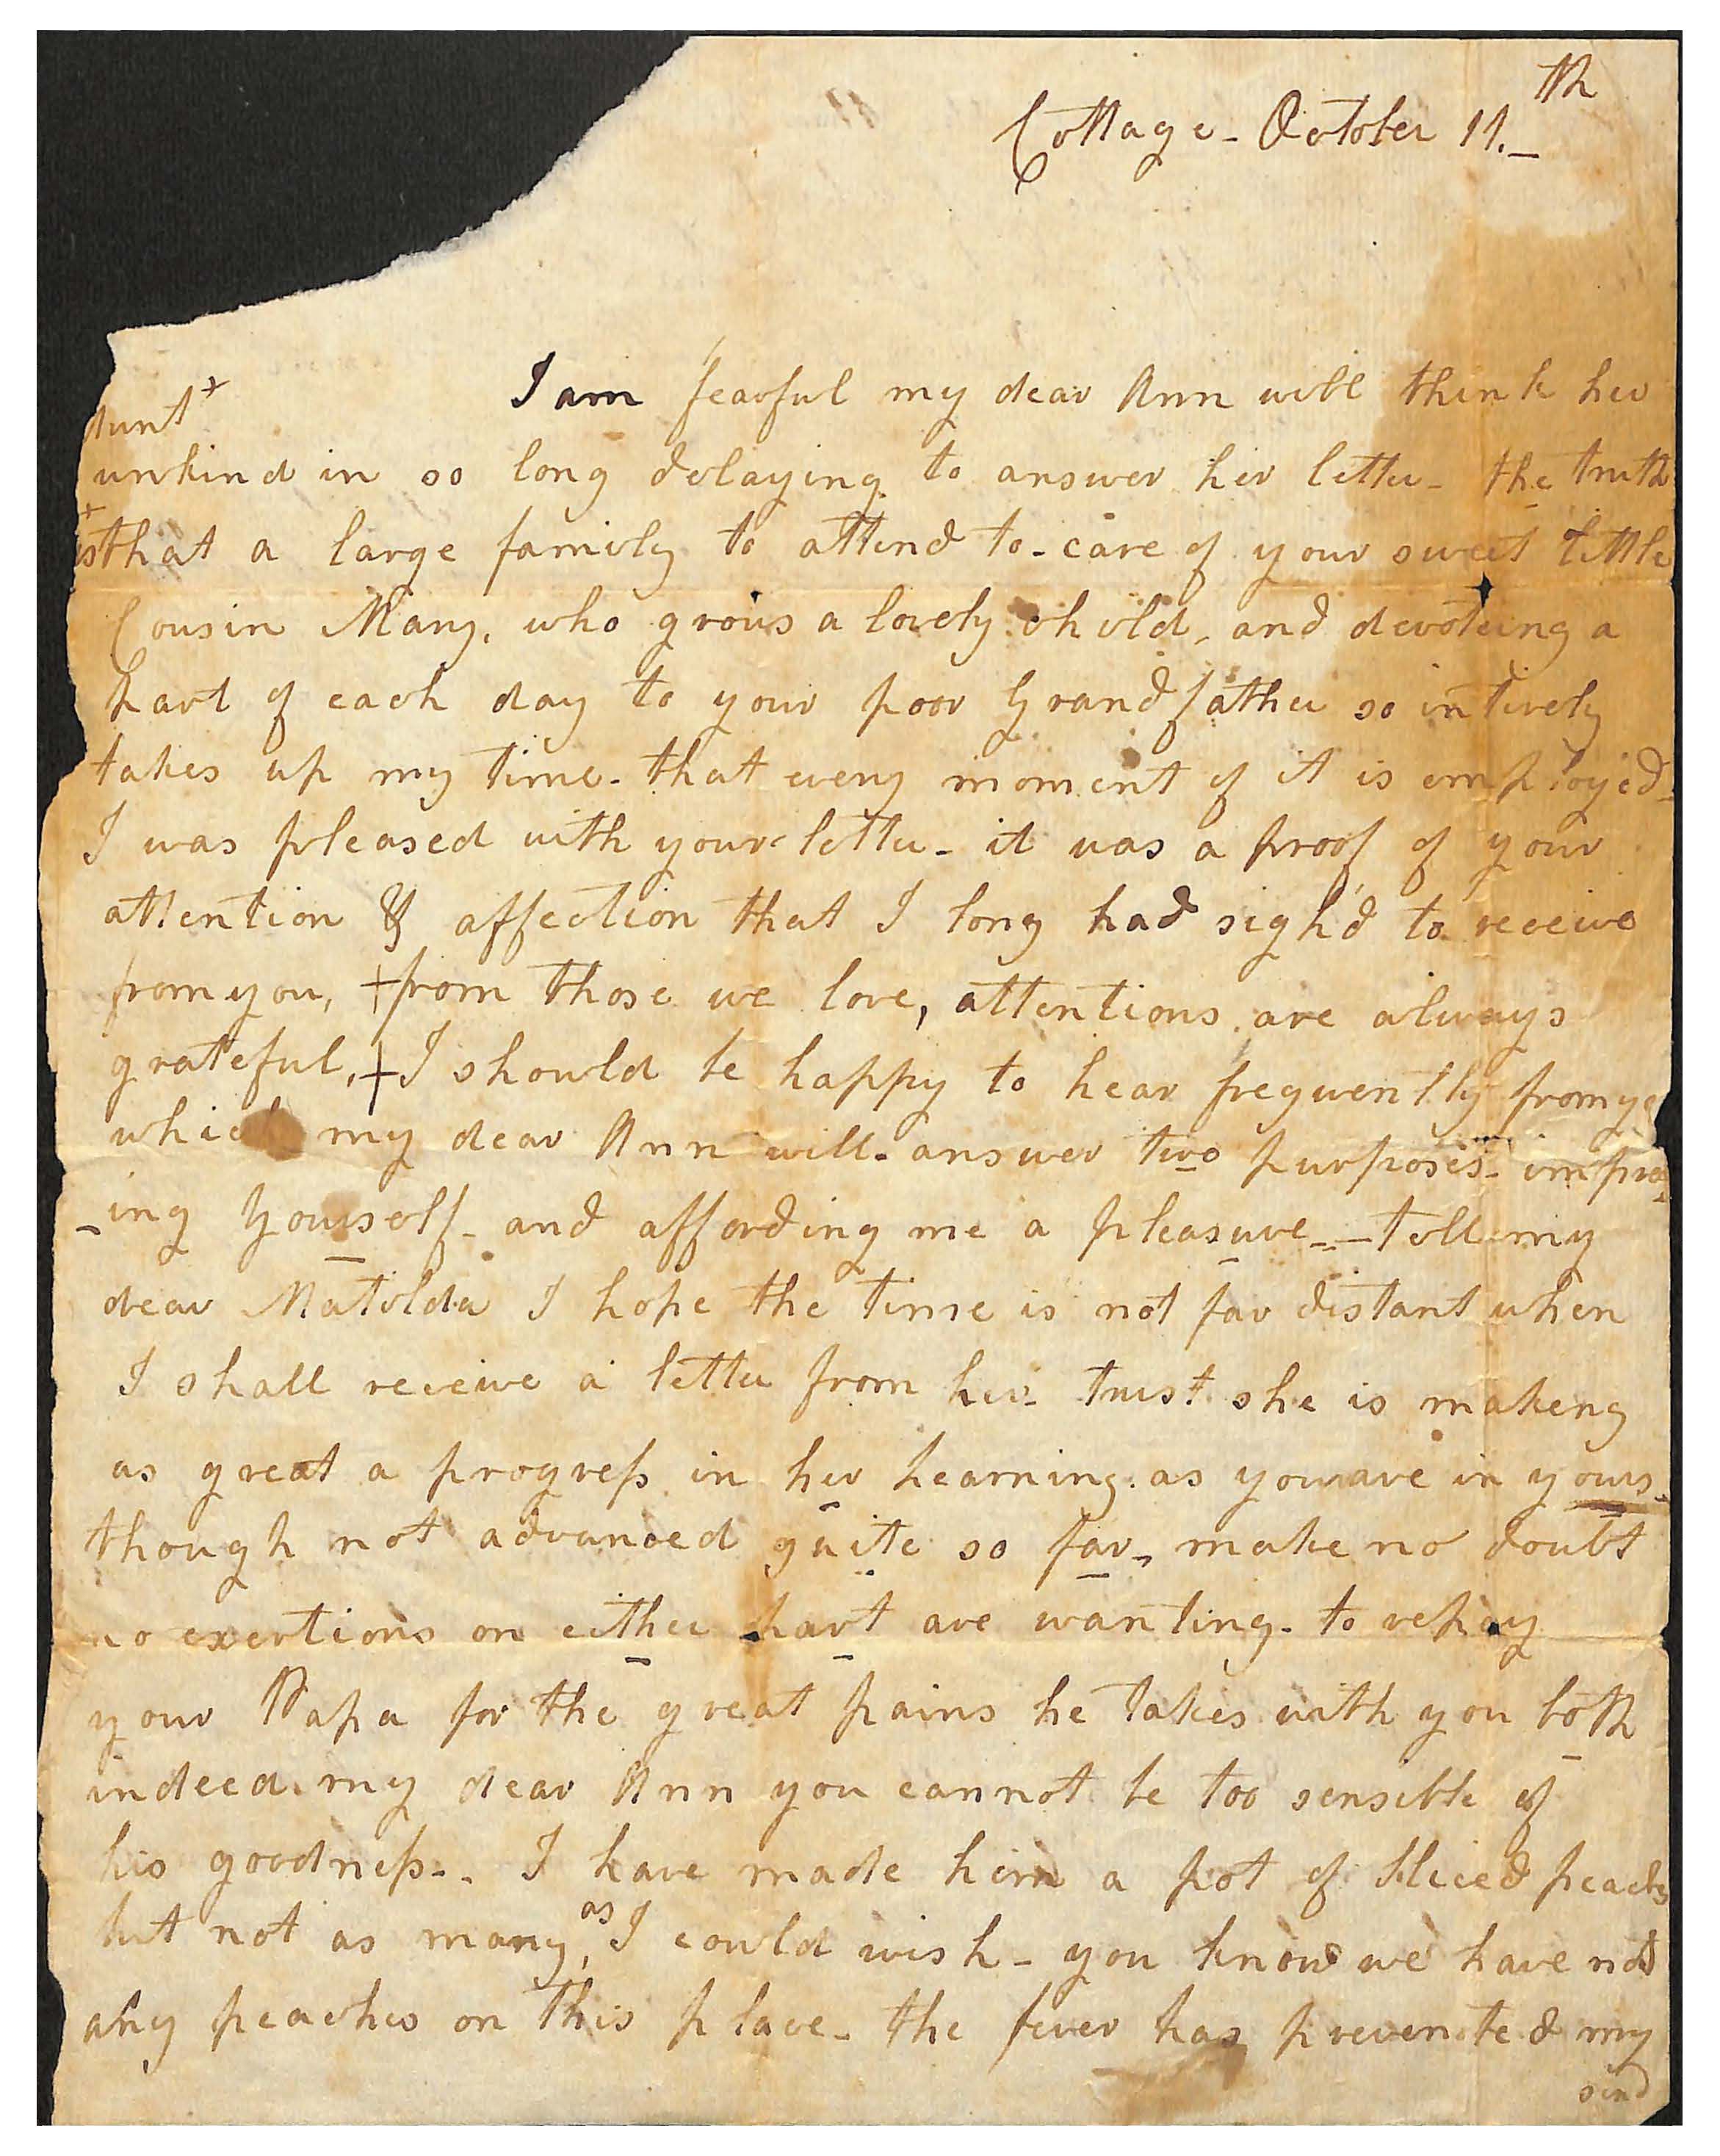 Cottage - October 11.th
I am fearful my dear Ann will think her
Aunt+
unkind in so long delaying to answer her letter - the truth
+
is that a large family to attend to - care of your sweet little
Cousin Mary, who grows a lovely child, and devoteing a
part of each day to your poor Grandfather so intirely
takes up my time - that every moment of it is employed -
I was pleased with your letter - it was a proof of your
attention & affection that I long had sigh'd to receive
from you, + from those we love, attentions are always
grateful, + I should be happy to hear frequently from yo
which my dear Ann will - answer two purposes - improv
-ing yourself - and affording me a pleasure - - tell my
dear Matilda I hope the time is not far distant when
I shall receive a letter from her - trust she is makeng
as great a progress in her learning as you are in yours -
though not advanced quite so far - make no doubt
no exertions on either part are wanting - to repay
your Papa for the great pains he takes with you both
indeed my dear Ann you cannot be too sensible of
his goodness - . I have made him a pot of sliced peaches
but not as many, as I could wish - you know we have not
any peaches on this place - the fever has prevented my
send